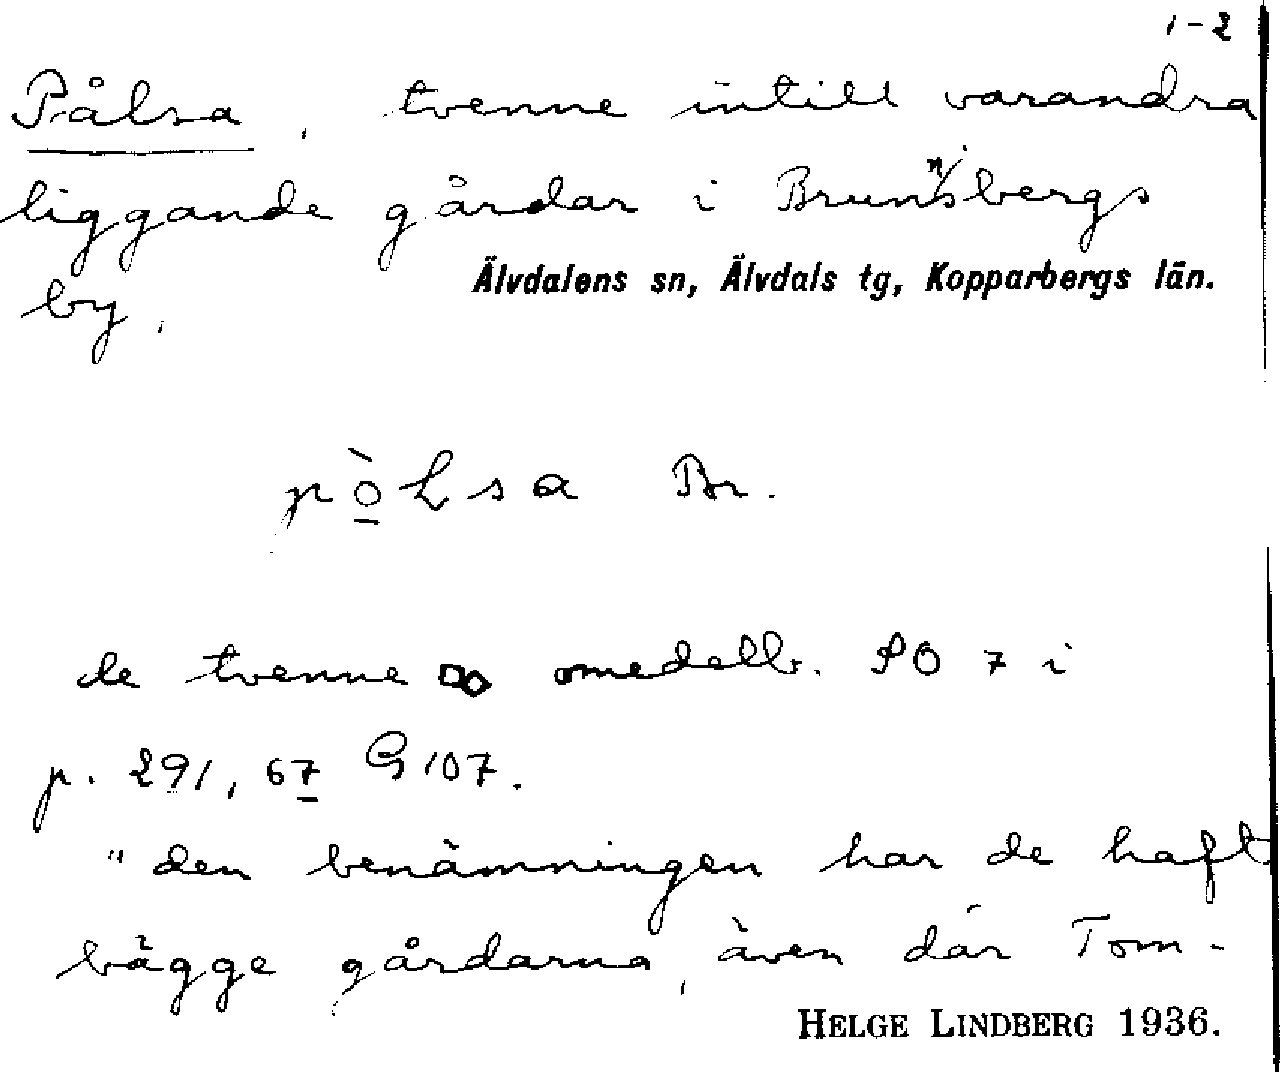 1-2
Pålsa, tvenne intill varandra
liggande gårdar i Brunnsbergs
Älvdalens sn, Älvdals tg, Kopparbergs län.
by.
pò̱Lsa Br.
de tvenne omedelb. SO 7 i
p. 291, 67 G 107.
"den benämningen har de haft
bägge gårdarna, även där Tom-
HELGE LINDBERG 1936.